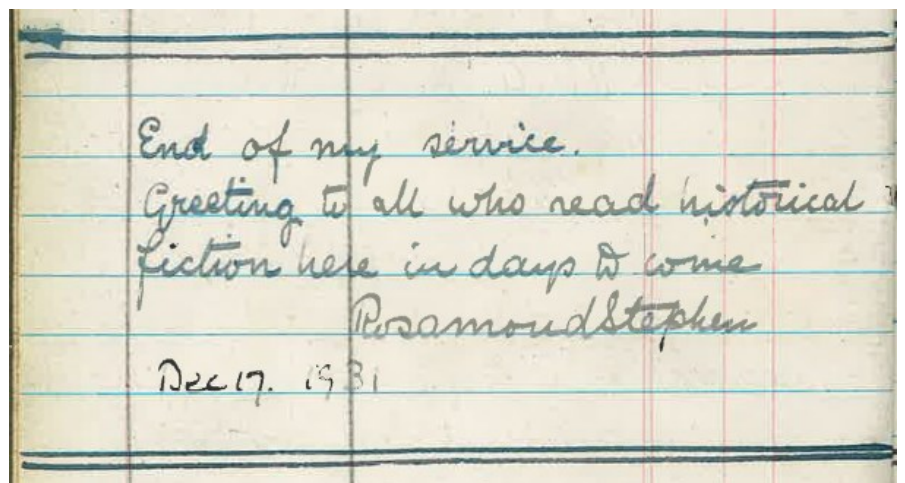 End of my service.
Greeting to all who read historical
fiction here in days to come
Rosamond Stephen
Dec 17. 1931